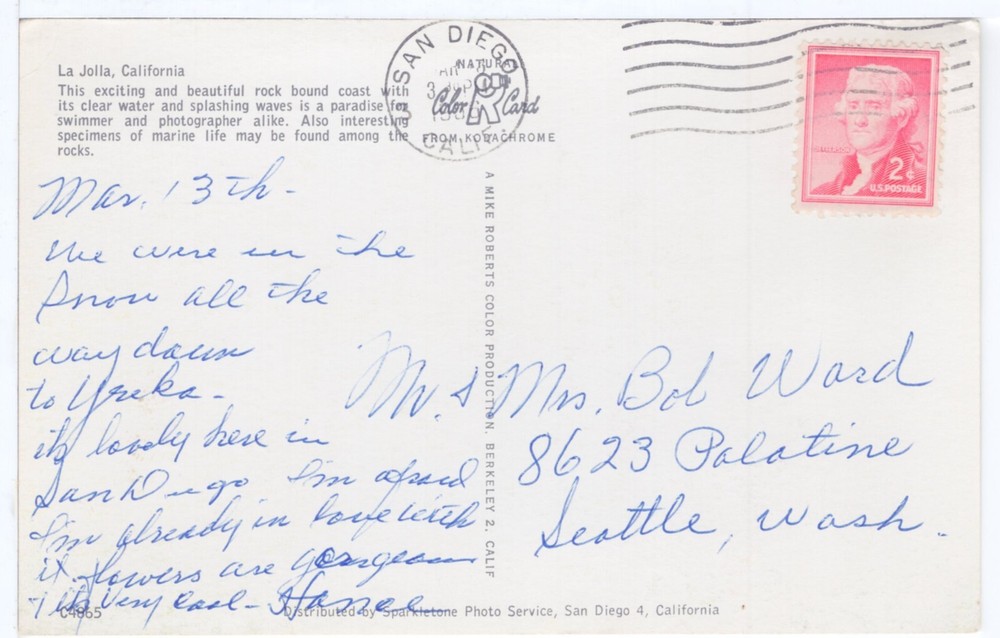 La Jolla, California
This exciting and beautiful rock bound coast with
its clear water and splashing waves is a paradise for
swimmer and photographer alike. Also interesting
specimens of marine life may be found among the
rocks.
SAN DIEGO
CALIF.
NATURAL
Color Card
FROM KODACHROME
JEFFERSON
2¢
U.S. POSTAGE
Mar. 13th -
We were in the
Snow all the
way down
to Yreka -
its lovely here in
San Diego I'm afraid
I'm already in love with
it. flowers are gorgeous
& its very cool -
A MIKE ROBERTS COLOR PRODUCTION, BERKELEY 2, CALIF
Mr. & Mrs. Bob Ward
8623 Palatine
Seattle, Wash.
C4865
Distributed by Sparkletone Photo Service, San Diego 4, California